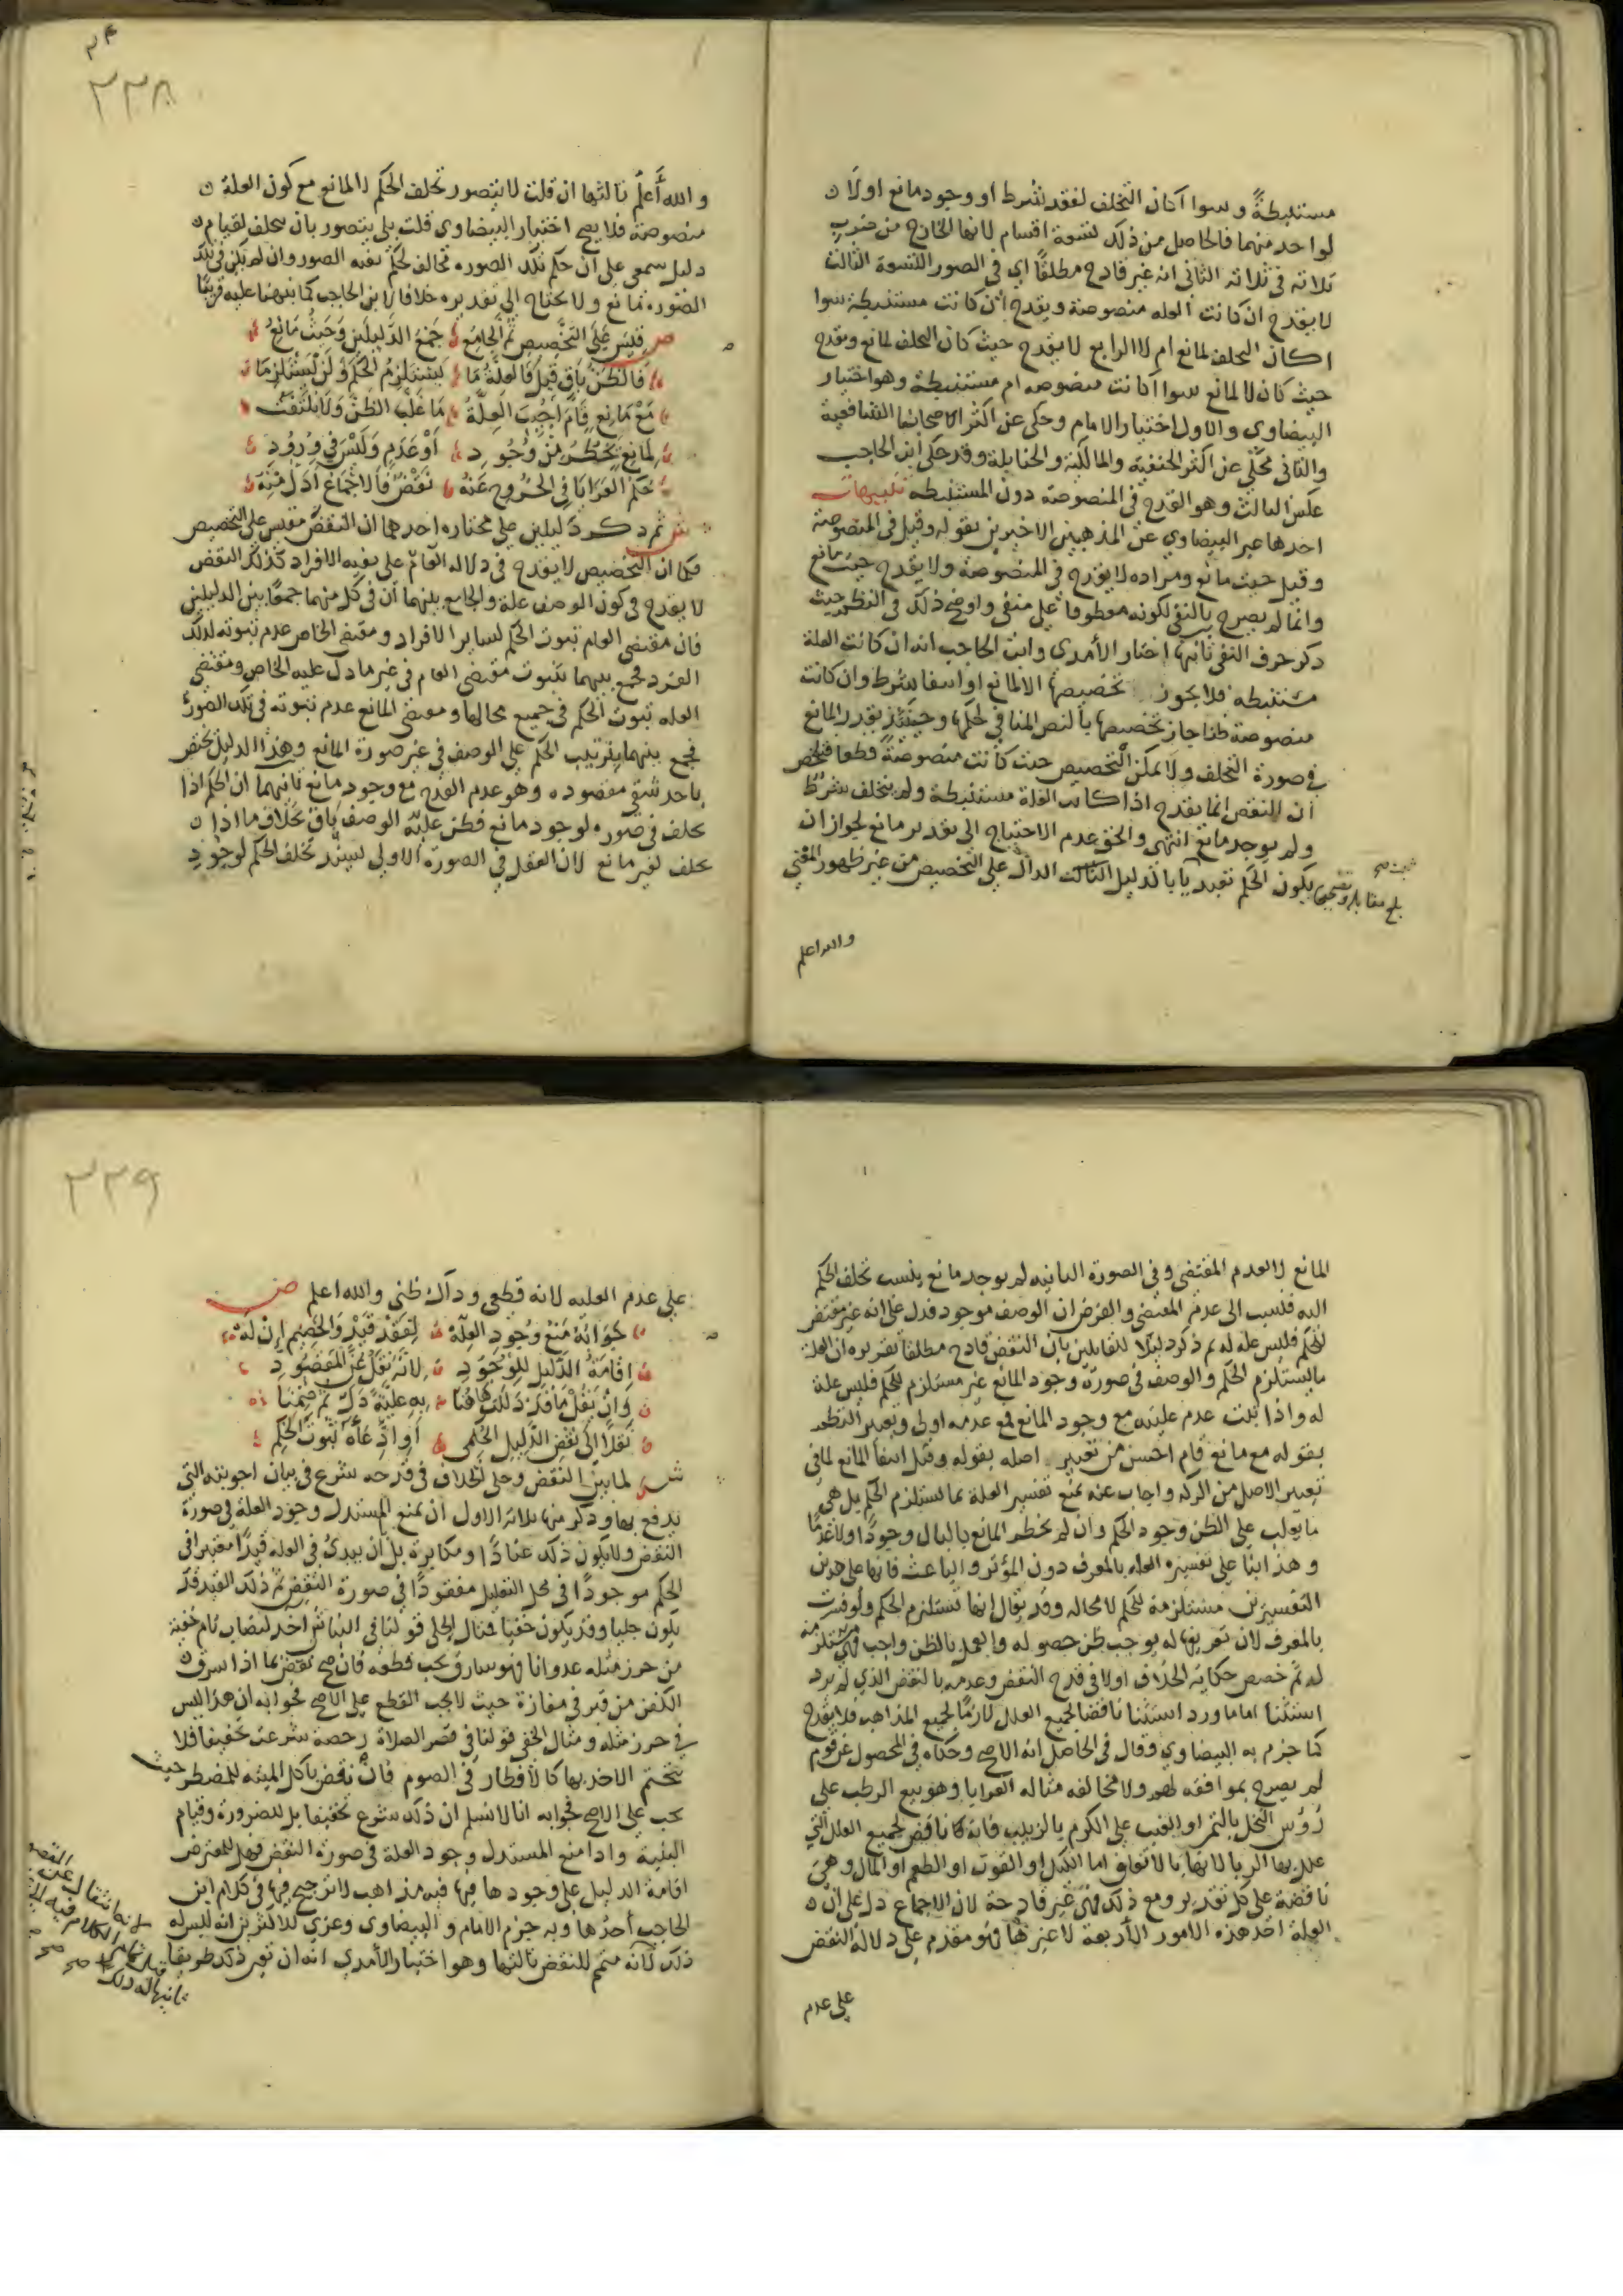 مستنبطةً وسوا آكان التخلف لفقد شرط او وجود مانع اولا
لواحد منهما فالحاصل من ذلك تسعة اقسام لانها الخارج من ضرب
ثلاثة في ثلاثه الثاني انه غير قادح مطلقًا اي في الصور التسعة الثالث
لا يقدح ان كانت العله منصوصة ويقدح ان كانت مستنبطة سوا
اكان التخلف لمانع ام لا الرابع لا يقدح حيث كان التخلف لمانع ويقدح
حيث كان لا لمانع سوا آكانت منصوصه ام مستنبطة وهو اختيار
البيضاوي والاول اختيار الامام وحكى عن اكثر اصحابنا الشافعية
والثاني محكي عن اكثر الحنفية والمالكية والحنابلة وقد حكى ابن الحاجب
عكس الثالث وهو القدح في المنصوصة دون المستنبطه تنبيهات
احدها عبر البيضاوي عن المذهبين الاخيرين بقوله وقيل في المنصوصة
وقيل حيث مانع ومراده لا يقدح في المنصوصة ولا يقدح حيث مانع
وانما لم يصرح بالنفي لكونه معطوفا على منفي واوضح ذلك في النظم حيث
ذكر حرف النفي ثانيها اختار الآمدي وابن الحاجب انه ان كانت العلة
مستنبطه فلا يجوز تخصيصها الا لمانع او انتفا شرط وان كانت
منصوصة ظنا جاز تخصيصها بالنص المنافي لحكمها وحينئذ يقدر المانع
في صورة التخلف ولا يمكن التخصيص حيث كانت منصوصةً قطعا فتلخص
ان النقض انما يقدح اذا كانت العلة مستنبطة ولم يتخلف شرط
ولم يوجد مانع انتهى والحق عدم الاحتياج الى تقدير مانع لجواز ان
يكون الحكم تعبديا بالدليل الثالث الدال على التخصيص من غير ظهور المقتضي
بلغ مقابلة وتصحيحا
والله اعلم
٢٣٨
والله أعلم ثالثها ان قلت لا يتصور تخلف الحكم لا لمانع مع كون العلة
منصوصة فلا يصح اختيار البيضاوي قلت بلى يتصور بان يتخلف لقيام
دليل سمعي على ان حكم تلك الصوره تخالف لحكم بقيه الصور وان لم يكن في تلك
الصورة مانع ولا يحتاج الى تقديره خلافا لابن الحاجب كما نبهنا عليه قريبًا
ص قِيسَ عَلَى التَّخْصِيصِ ثُمَّ الجَامِعُ جَمْعُ الدَّلِيلَيْنِ وَحَيْثُ مَانِعُ
فَالظَّنُّ بَاقٍ قِيلَ فَالعِلَّةُ مَا يَسْتَلْزِمُ الحُكْمَ وَلَنْ يَسْتَلْزِمَا
مَعْ مَانِعٍ قَامَ أُجِيبَ العِلَّةُ مَا غَلَبَ الظَّنَّ وَلَا يُلْتَفَتُ
لِمَانِعٍ يَخْطُرُ مِنْ وُجُودِ أَوْ عَدَمٍ وَلَيْسَ في وُرُودِ
حُكْمِ العَرَايَا فِي الخُرُوجِ عَنْهُ نَقْضٌ فَالاجْمَاعُ أَدَلُّ مِنْهُ
ش ثم ذكر دليلين على مختاره احدهما ان النقض مقيس على التخصيص
فكما ان التخصيص لا يقدح في دلاله العام على بقيه الافراد كذلك النقض
لا يقدح في كون الوصف علة والجامع بينهما ان في كل منهما جمعًا بين الدليلين
فان مقتضى العام ثبوت الحكم لساير الافراد ومقتضى الخاص عدم ثبوته لذلك
الفرد فجمع بينهما بثبوت مقتضى العام في غير ما دل عليه الخاص ومقتضى
العله ثبوت الحكم في جميع محالها ومقتضى المانع عدم ثبوته في تلك الصورة
فجمع بينهما بترتيب الحكم على الوصف في غير صورة المانع وهذا الدليل يختص
باحد شقي مقصوده وهو عدم القدح مع وجود مانع ثانيهما ان الحكم اذا
تخلف في صوره لوجود مانع فظن علية الوصف باق بخلاف ما اذا
تخلف لغير مانع لان العقل في الصورة الاولى يسند تخلف الحكم لوجود
المانع لا لعدم المقتضي وفي الصورة الثانيه لم يوجد مانع ينسب تخلف الحكم
اليه فنسب الى عدم المقتضي والفرض ان الوصف موجود فدل على انه غير مقتض
للحكم فليس علة له ثم ذكر دليلا للقايلين بان النقض قادح مطلقا تقريره ان العلة
ما يستلزم الحكم والوصف في صورة وجود المانع غير مستلزم للحكم فليس علة
له واذا ثبت عدم عليته مع وجود المانع فمع عدمه اولى وتعبير النظم
بقوله مع مانع قام احسن من تعبير اصله بقوله وقبل انتفا المانع لما في
تعبير الاصل من الركه واجاب عنه بمنع تفسير العلة بما يستلزم الحكم بل هي
ما يغلب على الظن وجود الحكم وان لم يخطر المانع بالبال وجودًا ولا عدمًا
وهذا بنا على تفسيره العله بالمعرف دون المؤثر والباعث فانها على هذين
التفسيرين مستلزمة للحكم لا محالة وقد يقال انها تستلزم الحكم ولو فسرت
بالمعرف لان تعريفها له يوجب ظن حصوله والعمل بالظن واجب فهي مستلزمة
له ثم خصص حكاية الخلاف اولا في قدح النقض وعدمه بالنقض الذي لم يرد
استثنا اما ما ورد استثنا ناقضا لجميع العلل لازمًا لجميع المذاهب فلا يقدح
كما جزم به البيضاوي وقال في الحاصل انه الاصح وحكاه في المحصول عن قوم
لم يصرح بموافقه لهم ولا مخالفه مثاله العرايا وهو بيع الرطب على
رُؤُس النخل بالتمر او العنب على الكرم بالزبيب فانه ناقض لجميع العلل التي
علل بها الربا لانها بالاتفاق اما الكيل او القوت او الطعم او المال وهي
ناقضة على كل تقدير ومع ذلك فهي غير قادحة لان الاجماع دل على ان
العلة احد هذه الامور الأربعة لا غيرها فهو مقدم على دلالة النقض
على عدم
٢٣٩
على عدم العليه لانه قطعي وذاك ظني والله اعلم ص
جَوَابُهُ مَنْعُ وُجُودِ العِلَّةْ لِفَقْدِ قَيْدٍ وَالخَصِيمُ إنْ لَهْ
إِقَامَةُ الدَّلِيلِ لِلْوُجُودِ لِأَنَّهُ نَقْلٌ عَنِ المَقْصُودِ
وَإِنْ يَقُلْ مَا قَدْ دَلَلْتَ هَاهُنَا بِهِ عِلِّيَّةً دَلَّ ثَمَّ
نَقْلًا إِلَى نَقْضِ الدَّلِيلِ أَوِ ادِّعَاءُ ثُبُوتِ الحُكْمِ
ش لما بين النقض وحكى الخلاف في قدحه شرع في بيان اجوبته التي
يدفع بها وذكر منها ثلاثة الاول ان يمنع المستدل وجود العلة في صورة
النقض ولا يكون ذلك عنادًا ومكابرة بل ان يبدي في العله قيدًا معتبرا في
الحكم موجودًا في محل التعليل مفقودًا في صورة النقض ثم ذلك القيد قد
يكون جليا وقد يكون خفيا مثال الجلي قولنا في النباش اخذ لنصاب تام خفية
من حرز مثله عدوانا فهو سارق يجب قطعه فان نقض بما اذا سرق
الكفن من قبر في مفازة حيث لا يجب القطع على الاصح فجوابه ان هذا ليس
في حرز مثله ومثال الخفي قولنا في قصر الصلاة رخصة شرعت تخفيفا فلا
يتحتم الاخذ بها كالافطار في الصوم فان نقض باكل الميته للمضطر حيث
يجب على الاصح فجوابه انا لا نسلم ان ذلك شرع تخفيفا بل للضرورة وقيام
البنية واذا منع المستدل وجود العلة في صورة النقض فهل للمعترض
اقامة الدليل على وجودها فيها فيه مذاهب لا ترجيح فيها في كلام ابن
الحاجب أحدها وبه جزم الامام والبيضاوي وعزي للاكثرين انه ليس له
ذلك لانه متمم للنقض ثالثها وهو اختيار الآمدي انه ان تعين ذلك طريقا
لانه انتقال عن
ثانيها له ذلك